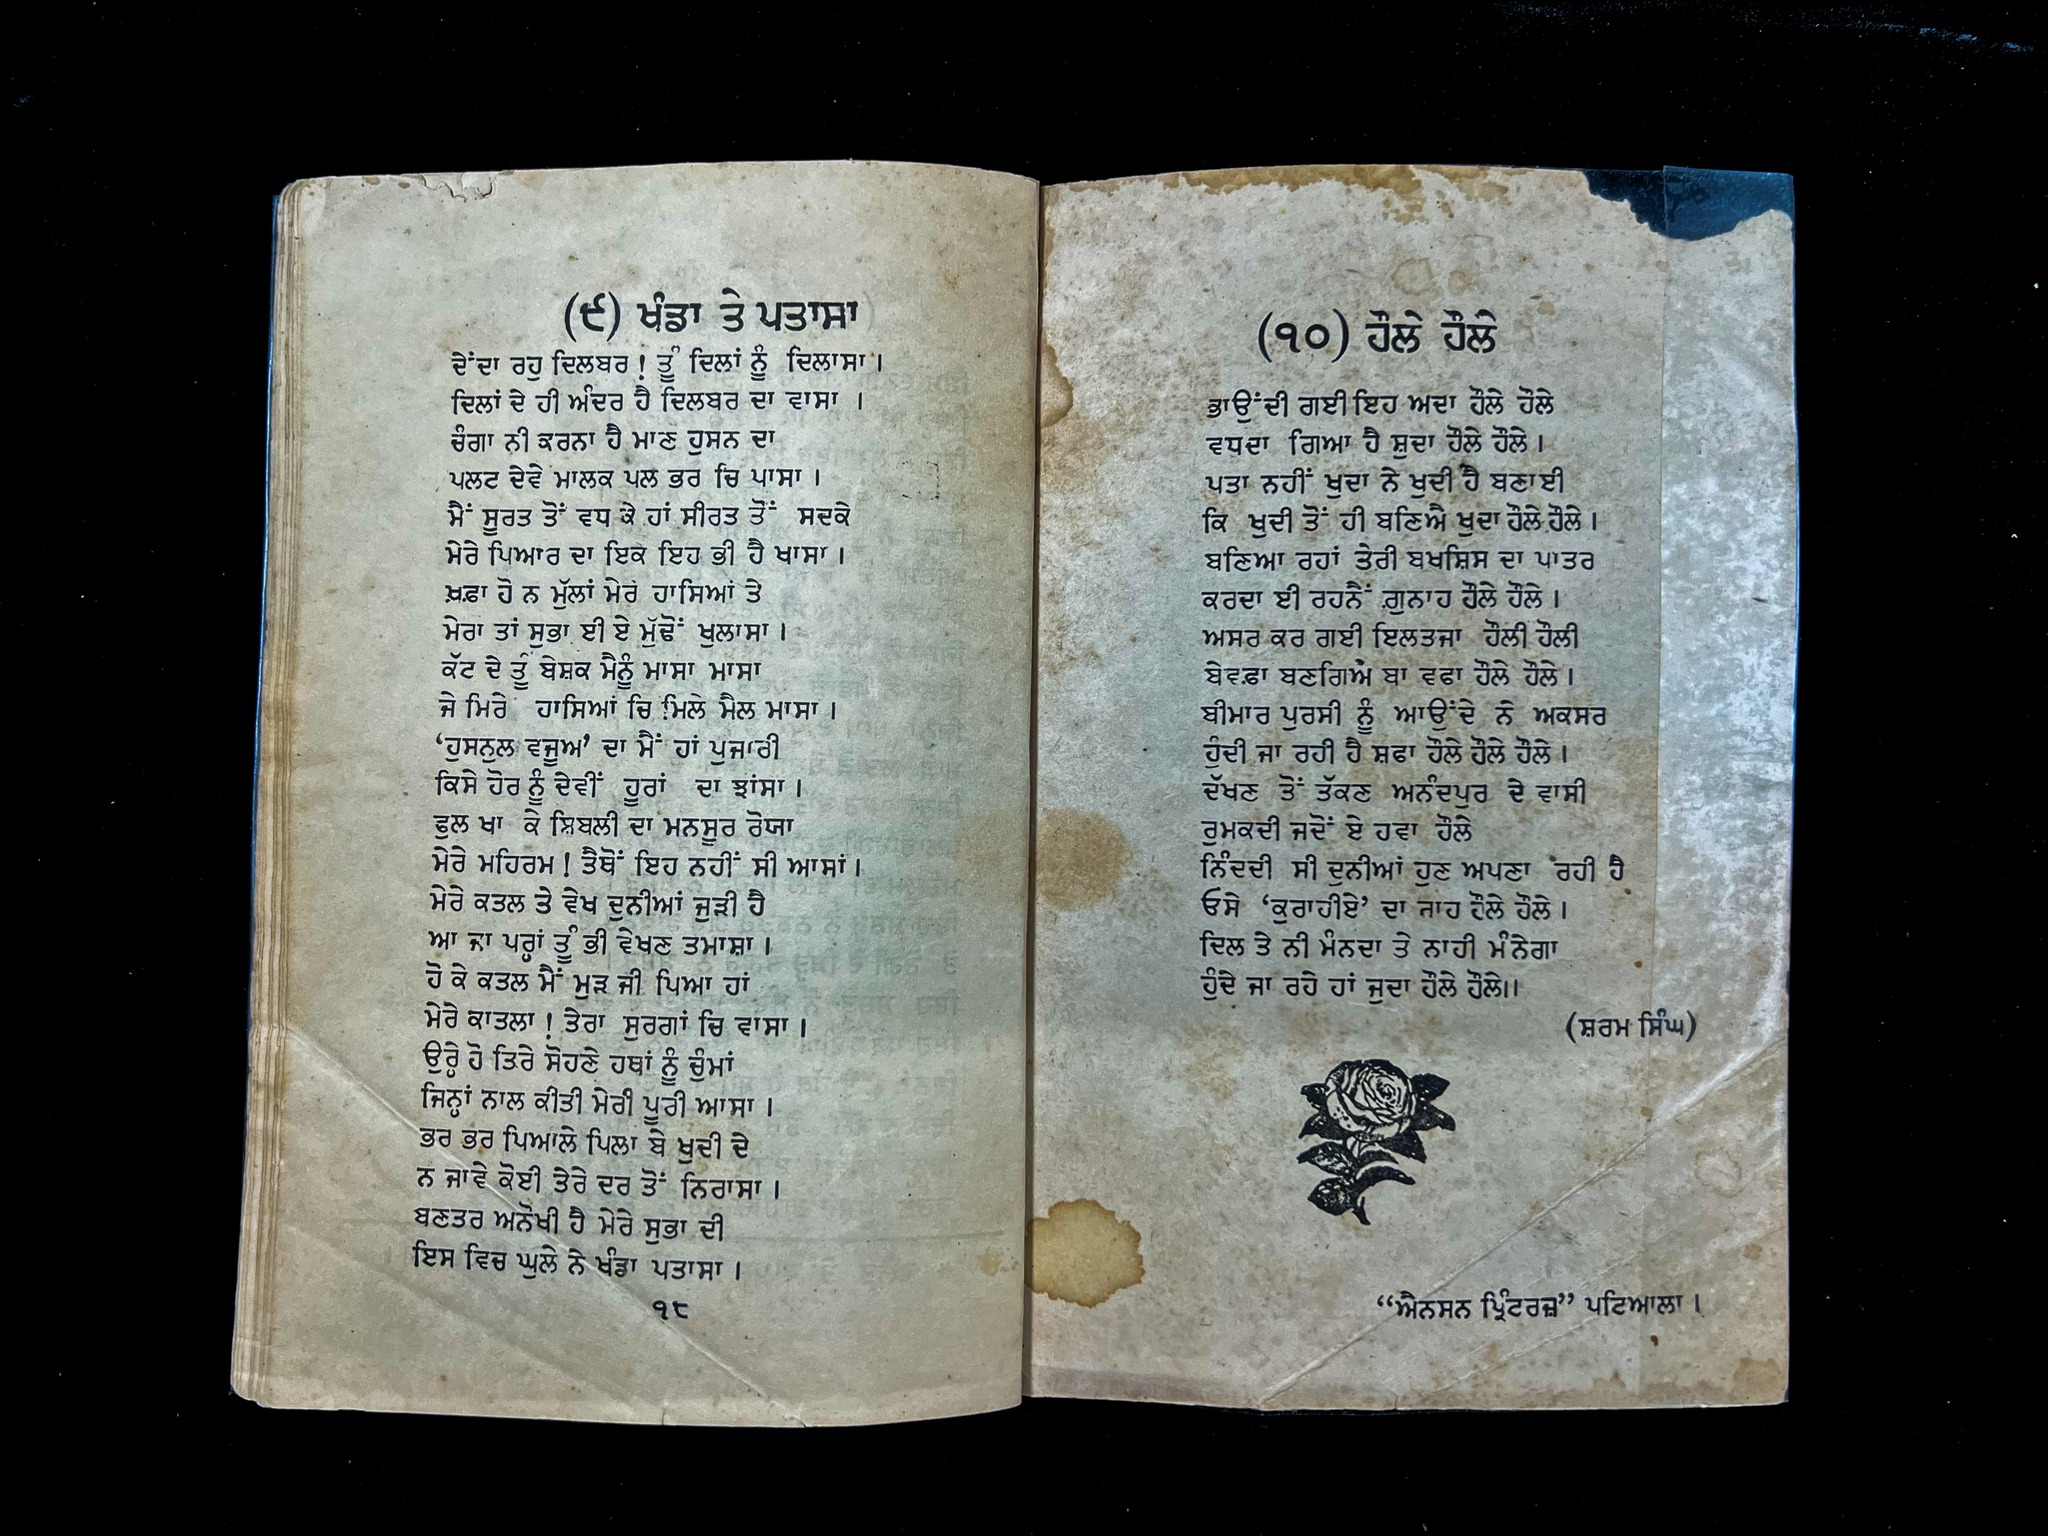 (੯) ਖੰਡਾ ਤੇ ਪਤਾਸਾ
ਦੇਂਦਾ ਰਹੁ ਦਿਲਬਰ ! ਤੂੰ ਦਿਲਾਂ ਨੂੰ ਦਿਲਾਸਾ ।
ਦਿਲਾਂ ਦੇ ਹੀ ਅੰਦਰ ਹੈ ਦਿਲਬਰ ਦਾ ਵਾਸਾ ।
ਚੰਗਾ ਨੀ ਕਰਨਾ ਹੈ ਮਾਣ ਹੁਸਨ ਦਾ
ਪਲਟ ਦੇਵੇ ਮਾਲਕ ਪਲ ਭਰ ਚਿ ਪਾਸਾ ।
ਮੈਂ ਸੂਰਤ ਤੋਂ ਵਧ ਕੇ ਹਾਂ ਸੀਰਤ ਤੋਂ ਸਦਕੇ
ਮੇਰੇ ਪਿਆਰ ਦਾ ਇਕ ਇਹ ਭੀ ਹੈ ਖਾਸਾ ।
ਖ਼ਫ਼ਾ ਹੋ ਨ ਮੁੱਲਾਂ ਮੇਰੇ ਹਾਸਿਆਂ ਤੇ
ਮੇਰਾ ਤਾਂ ਸੁਭਾ ਈ ਏ ਮੁੱਢੋਂ ਖੁਲਾਸਾ ।
ਕੱਟ ਦੇ ਤੂੰ ਬੇਸ਼ਕ ਮੈਨੂੰ ਮਾਸਾ ਮਾਸਾ
ਜੇ ਮਿਰੇ ਹਾਸਿਆਂ ਚਿ ਮਿਲੇ ਮੈਲ ਮਾਸਾ ।
‘ਹੁਸਨੁਲ ਵਜੂਅ’ ਦਾ ਮੈਂ ਹਾਂ ਪੁਜਾਰੀ
ਕਿਸੇ ਹੋਰ ਨੂੰ ਦੇਵੀਂ ਹੂਰਾਂ ਦਾ ਝਾਂਸਾ ।
ਫੁਲ ਖਾ ਕੇ ਸ਼ਿਬਲੀ ਦਾ ਮਨਸੂਰ ਰੋਯਾ
ਮੇਰੇ ਮਹਿਰਮ ! ਤੈਥੋਂ ਇਹ ਨਹੀਂ ਸੀ ਆਸਾਂ ।
ਮੇਰੇ ਕਤਲ ਤੇ ਵੇਖ ਦੁਨੀਆਂ ਜੁੜੀ ਹੈ
ਆ ਜਾ ਪਰ੍ਹਾਂ ਤੂੰ ਭੀ ਵੇਖਣ ਤਮਾਸ਼ਾ ।
ਹੋ ਕੇ ਕਤਲ ਮੈਂ ਮੁੜ ਜੀ ਪਿਆ ਹਾਂ
ਮੇਰੇ ਕਾਤਲਾ ! ਤੇਰਾ ਸੁਰਗਾਂ ਚਿ ਵਾਸਾ ।
ਉਰ੍ਹੇ ਹੋ ਤਿਰੇ ਸੋਹਣੇ ਹਥਾਂ ਨੂੰ ਚੁੰਮਾਂ
ਜਿਨ੍ਹਾਂ ਨਾਲ ਕੀਤੀ ਮੇਰੀ ਪੂਰੀ ਆਸਾ ।
ਭਰ ਭਰ ਪਿਆਲੇ ਪਿਲਾ ਬੇ ਖੁਦੀ ਦੇ
ਨ ਜਾਵੇ ਕੋਈ ਤੇਰੇ ਦਰ ਤੋਂ ਨਿਰਾਸਾ ।
ਬਣਤਰ ਅਨੋਖੀ ਹੈ ਮੇਰੇ ਸੁਭਾ ਦੀ
ਇਸ ਵਿਚ ਘੁਲੇ ਨੇ ਖੰਡਾ ਪਤਾਸਾ ।
੧੮
(੧੦) ਹੌਲੇ ਹੌਲੇ
ਭਾਉਂਦੀ ਗਈ ਇਹ ਅਦਾ ਹੌਲੇ ਹੌਲੇ
ਵਧਦਾ ਗਿਆ ਹੈ ਸ਼ੁਦਾ ਹੌਲੇ ਹੌਲੇ ।
ਪਤਾ ਨਹੀਂ ਖੁਦਾ ਨੇ ਖੁਦੀ ਹੈ ਬਣਾਈ
ਕਿ ਖੁਦੀ ਤੋਂ ਹੀ ਬਣਿਐ ਖੁਦਾ ਹੌਲੇ ਹੌਲੇ ।
ਬਣਿਆ ਰਹਾਂ ਤੇਰੀ ਬਖਸ਼ਿਸ ਦਾ ਪਾਤਰ
ਕਰਦਾ ਈ ਰਹਨੈਂ ਗੁਨਾਹ ਹੌਲੇ ਹੌਲੇ ।
ਅਸਰ ਕਰ ਗਈ ਇਲਤਜਾ ਹੌਲੀ ਹੌਲੀ
ਬੇਵਫ਼ਾ ਬਣਗਿਐ ਬਾ ਵਫਾ ਹੌਲੇ ਹੌਲੇ ।
ਬੀਮਾਰ ਪੁਰਸੀ ਨੂੰ ਆਉਂਦੇ ਨੇ ਅਕਸਰ
ਹੁੰਦੀ ਜਾ ਰਹੀ ਹੈ ਸ਼ਫਾ ਹੌਲੇ ਹੌਲੇ ਹੌਲੇ ।
ਦੱਖਣ ਤੋਂ ਤੱਕਣ ਅਨੰਦਪੁਰ ਦੇ ਵਾਸੀ
ਰੁਮਕਦੀ ਜਦੋਂ ਏ ਹਵਾ ਹੌਲੇ
ਨਿੰਦਦੀ ਸੀ ਦੁਨੀਆਂ ਹੁਣ ਅਪਣਾ ਰਹੀ ਹੈ
ਓਸੇ ‘ਕੁਰਾਹੀਏ’ ਦਾ ਰਾਹ ਹੌਲੇ ਹੌਲੇ ।
ਦਿਲ ਤੇ ਨੀ ਮੰਨਦਾ ਤੇ ਨਾਹੀ ਮੰਨੇਗਾ
ਹੁੰਦੇ ਜਾ ਰਹੇ ਹਾਂ ਜੁਦਾ ਹੌਲੇ ਹੌਲੇ।।
(ਸ਼ਰਮ ਸਿੰਘ)
“ਐਨਸਨ ਪ੍ਰਿੰਟਰਜ਼” ਪਟਿਆਲਾ ।